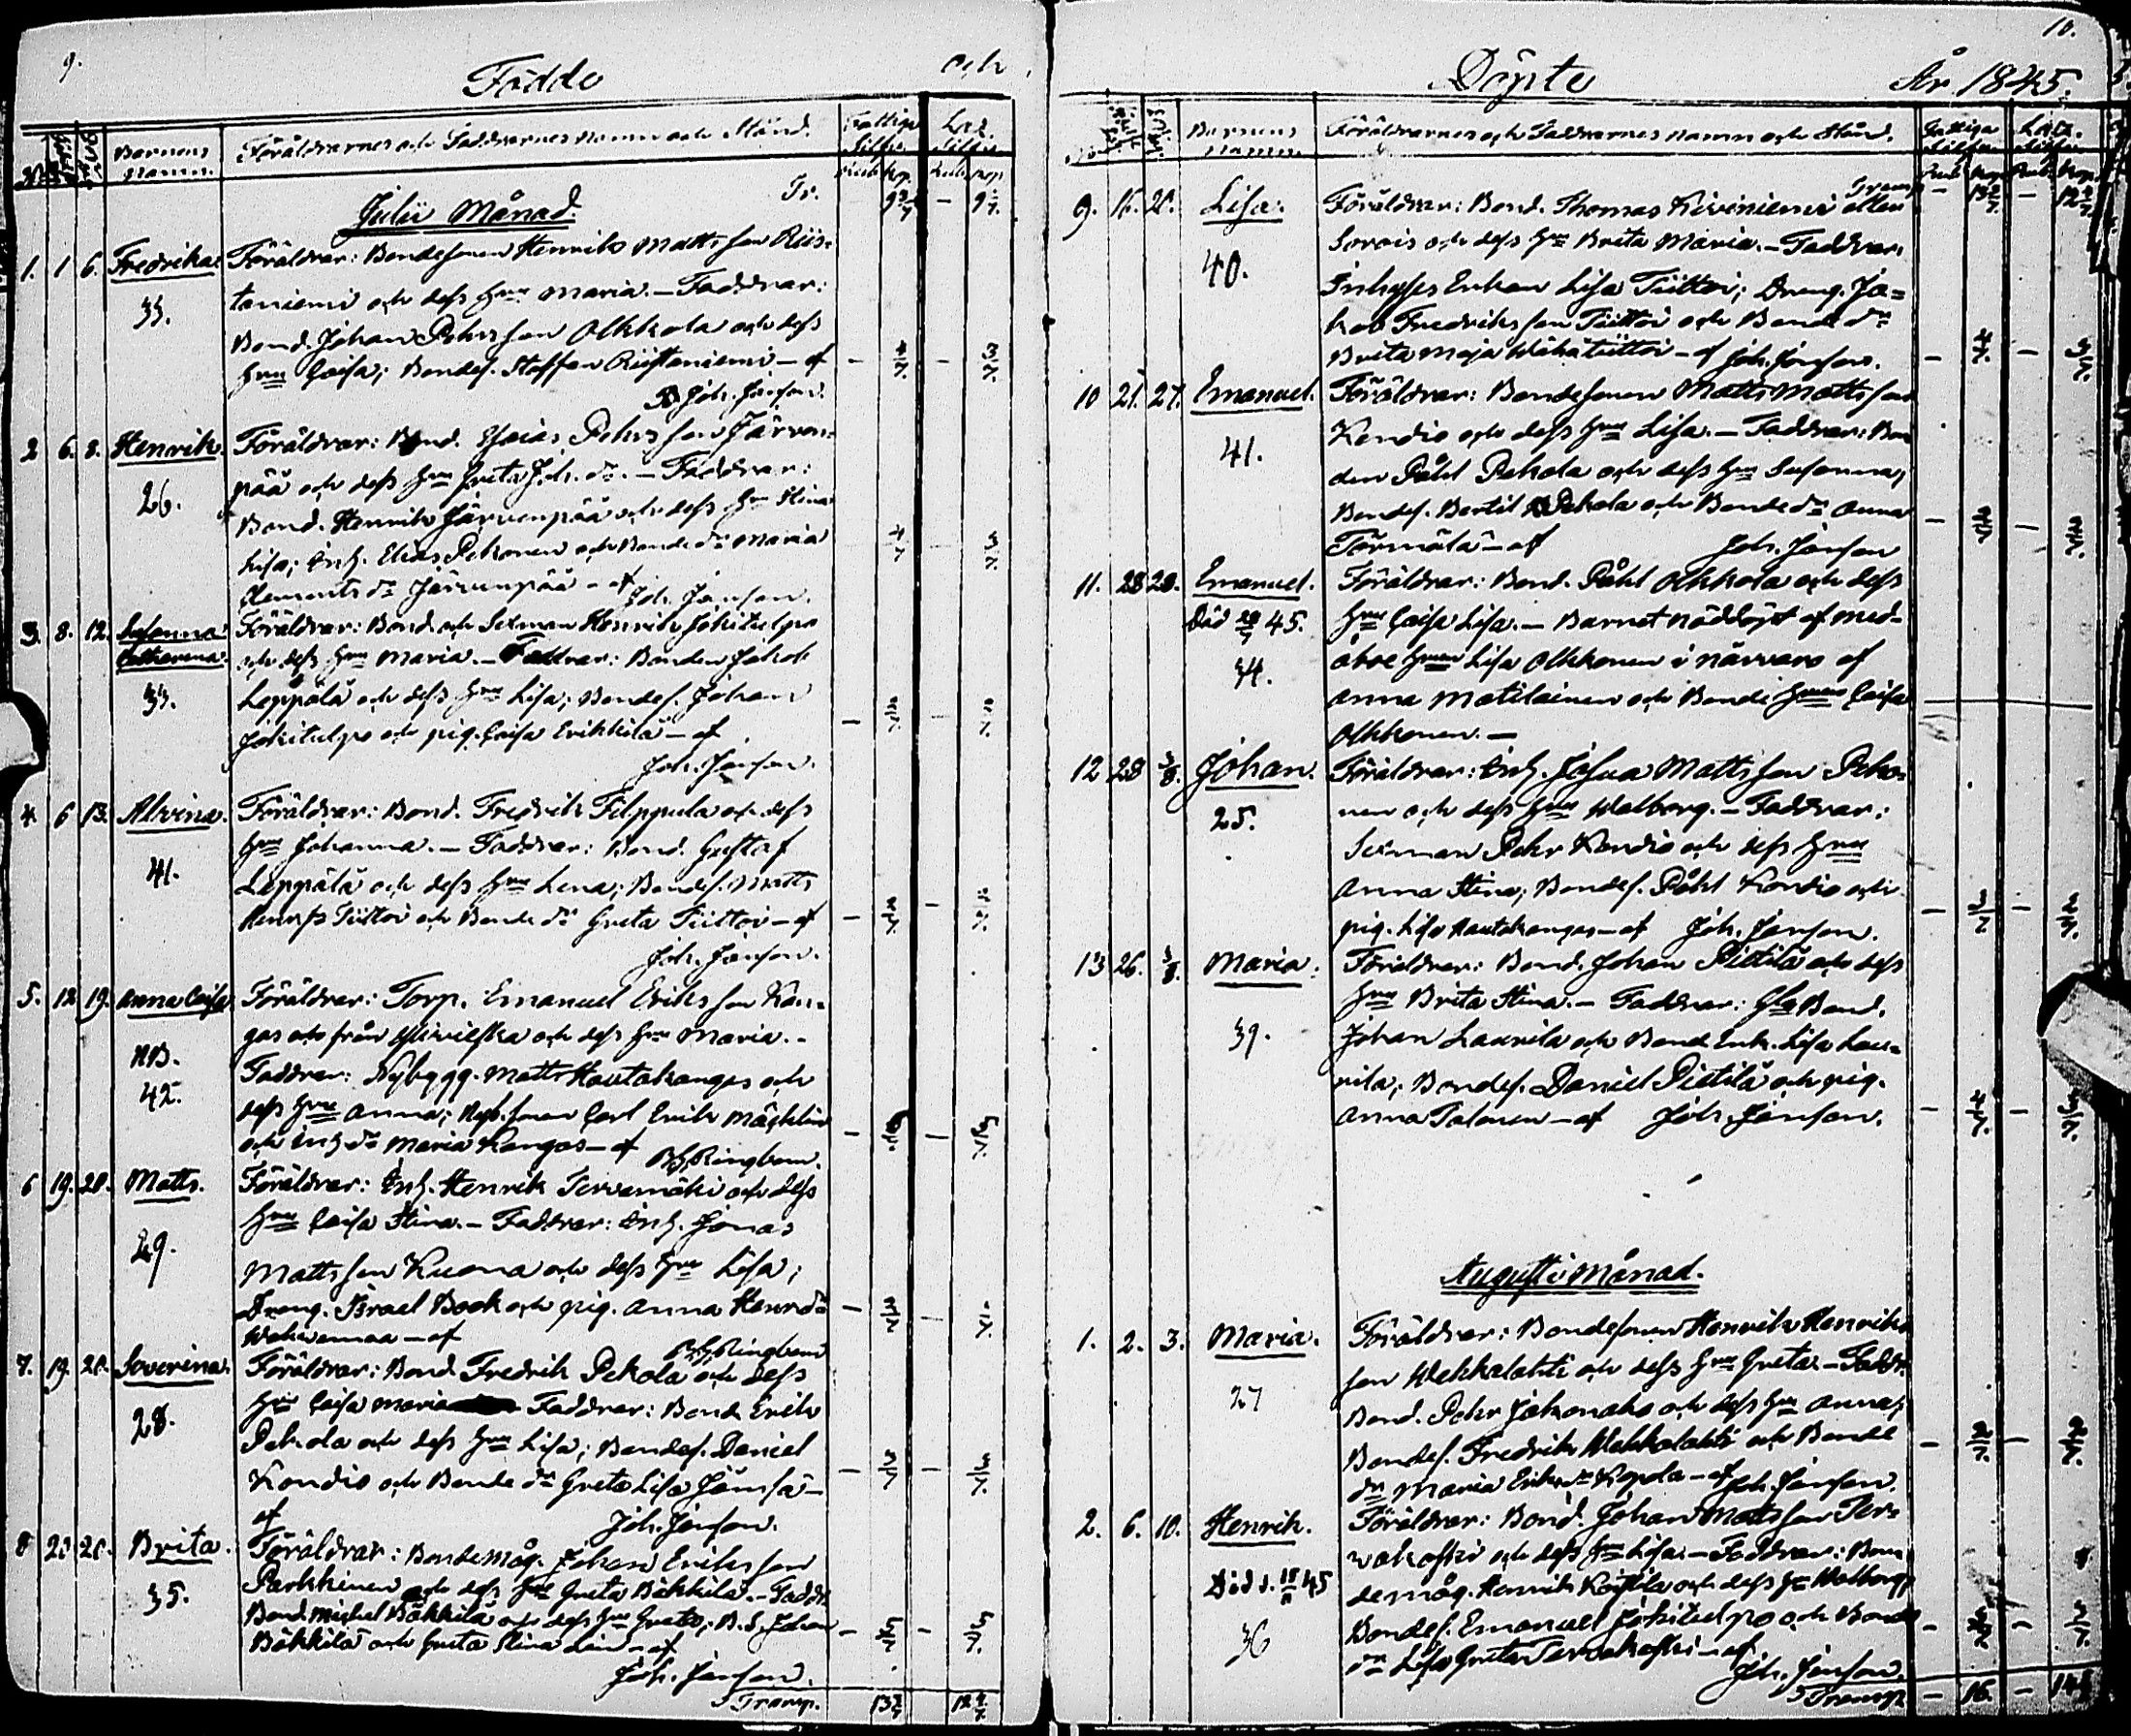 9.
Födde och
Barnens Namn. Föräldrarnes och Faddrarnes Namn och Stånd. Fattiga
Julii Månad. Tr.
1. 1 6. Fredrika. Föräldrar: Bondesonen Henrik Mattsson Riis-
33. taniemi och dess Hru Maria. – Faddrar:
Bond. Johan Pehrsson Olkkola och dess
Hru Caisa; Bondes. Staffan Riistaniemi – af
Joh. Janson.
2 6. 8. Henrik. Föräldrar: Bond. Esaias Pehrsson Järven-
26. pää och dess Hru Greta Joh. dr. – Faddrar:
Bond. Henrik Järvenpää och dess Hru Stina
Lisa; Inh. Elias Pekonen och Bonde dr Maria
Clements dr Järvenpää – af Joh. Janson.
3. 8. 12. Susanna Föräldrar: Bond. och Sexman Henrik Jokitulpo
Catharina. och dess Hru Maria. – Faddrar: Bonden Jakob
33. Leppälä och dess Hru Lisa; Bondes. Johan
Jokitulpo och pig. Caisa Erikkilä – af
Joh. Janson.
4. 6 13. Alvina. Föräldrar: Bond. Fredrik Filppula och dess
Hru Johanna. – Faddrar: Bond. Gustaf
41. Leppälä och dess Hru Lena; Bondes. Matts
Henrss Tiittoi och Bonde dr Greta Tiittoi – af
Joh. Janson.
5. 12 19. Anna Caisa Föräldrar: Torp. Emanuel Eriksson Kan-
gas och från Ylivieska och dess Hru Maria. –
NB. Faddrar: Nybygg. Matts Hautakangas och
42. dess Hru Anna; Nyb. sonen Carl Erik Mächlin
och Inh dr Maria Kangas – af Ringbom.
6 19. 20. Matts. Föräldrar: Inh. Henrik Tervamäki och dess
Hru Caisa Stina. – Faddrar: Inh. Jonas
29. Mattsson Kuona och dess Hru Lisa;
Dreng. Israel Book och pig. Anna Henrs dr
– af Ringbom
7. 19. 20. Severina. Föräldrar: Bond. Fredrik Pekola och dess
Hru Caisa Maria Faddrar: Bond. Erik
28. Pekola och dess Hru Lisa; Bondes. Daniel
Kondio och Bonde dr Greta Lisa Jämsä –
af Joh. Janson.
8 20 20. Brita. Föräldrar: Bondemåg. Johan Eriksson
35. Parkkinen och dess Hru Greta Bäkkilä. – Faddr.
Bond. Michel Bäkkilä och dess Hru Greta; B. S. Johan
Bäkkilä och Greta Stina – af
Joh. Janson.
Transp. 13 12
10.
Döpte År 1845.
Barnens Namn. Föräldrarnes och Faddrarnes Namn och Stånd. Fattiga
Transp
9. 16. 20. Lisa. Föräldrar: Bond. Thomas Kiviniemi eller
Sorvis och dess Hru Brita Maria. – Faddrar:
40. Inhyses Enkan Lisa Tiittoi; Dreng. Ja-
kob Fredriksson Tiittoi och Bonde dr
Brita Maja Wähätiittoi – af Joh. Janson.
10 21. 27. Emanuel. Föräldrar: Bondesonen Matts Mattsson
Kondio och dess Hru Lisa. – Faddrar: Bon
41. den Påhl Pekola och dess Hru Susanna;
Bondes. Bertil Pekola och Bonde dr Anna
Törmälä – af Joh. Janson
11. 28 28. Emanuel. Föräldrar: Bond. Påhl Olkkola och dess
Död 28/7 45. Hru Caisa Lisa. – Barnet nöddöpt af Med-
34. åboe Hrun Lisa Olkkonen i närvaro af
Anna Matilainen och Bonde Hrun Caisa
Olkkonen. –
12 28 3/8. Johan. Föräldrar: Inh. Josua Mattsson Peko-
25. nen och dess Hru Walborg. – Faddrar:
Sexman Pehr Kondio och dess Hru
Anna Stina; Bondes. Påhl Kondio och
pig. Lisa Hautakangas – af Joh. Janson.
13 26. 3/8. Maria. Föräldrar: Bond. Johan Pietilä och dess
Hru Brita Stina. – Faddrar: Gla Bond.
39. Johan Laurila och Bonde Enk. Lisa Lau-
rila; Bondes. Daniel Pietilä och pig.
Anna Palonen – af Joh. Janson.
Augusti Månad.
1. 2. 3. Maria. Föräldrar: Bondesonen Henrik Henriks
son Wehkalahti och dess Hru Greta. – Faddr.
27 Bond. Pehr Jokonaho och dess Hru Anna;
Bondes. Fredrik Wehkalahti och Bonde
dr Maria Eriks dr Kopola – af Joh. Janson.
2. 6. 10. Henrik. Föräldrar: Bond. Johan Mattsson Ter-
vakoski och dess Hru Lisa. – Faddrar: Bon-
Död d. 18/11 45 demåg. Henrik Koistila och dess Hr Walborg;
36 Bondes. Emanuel Jokitulpo och Bonde
dr Lisa Greta Tervakoski – af
Joh. Janson.
Transp – 16. –